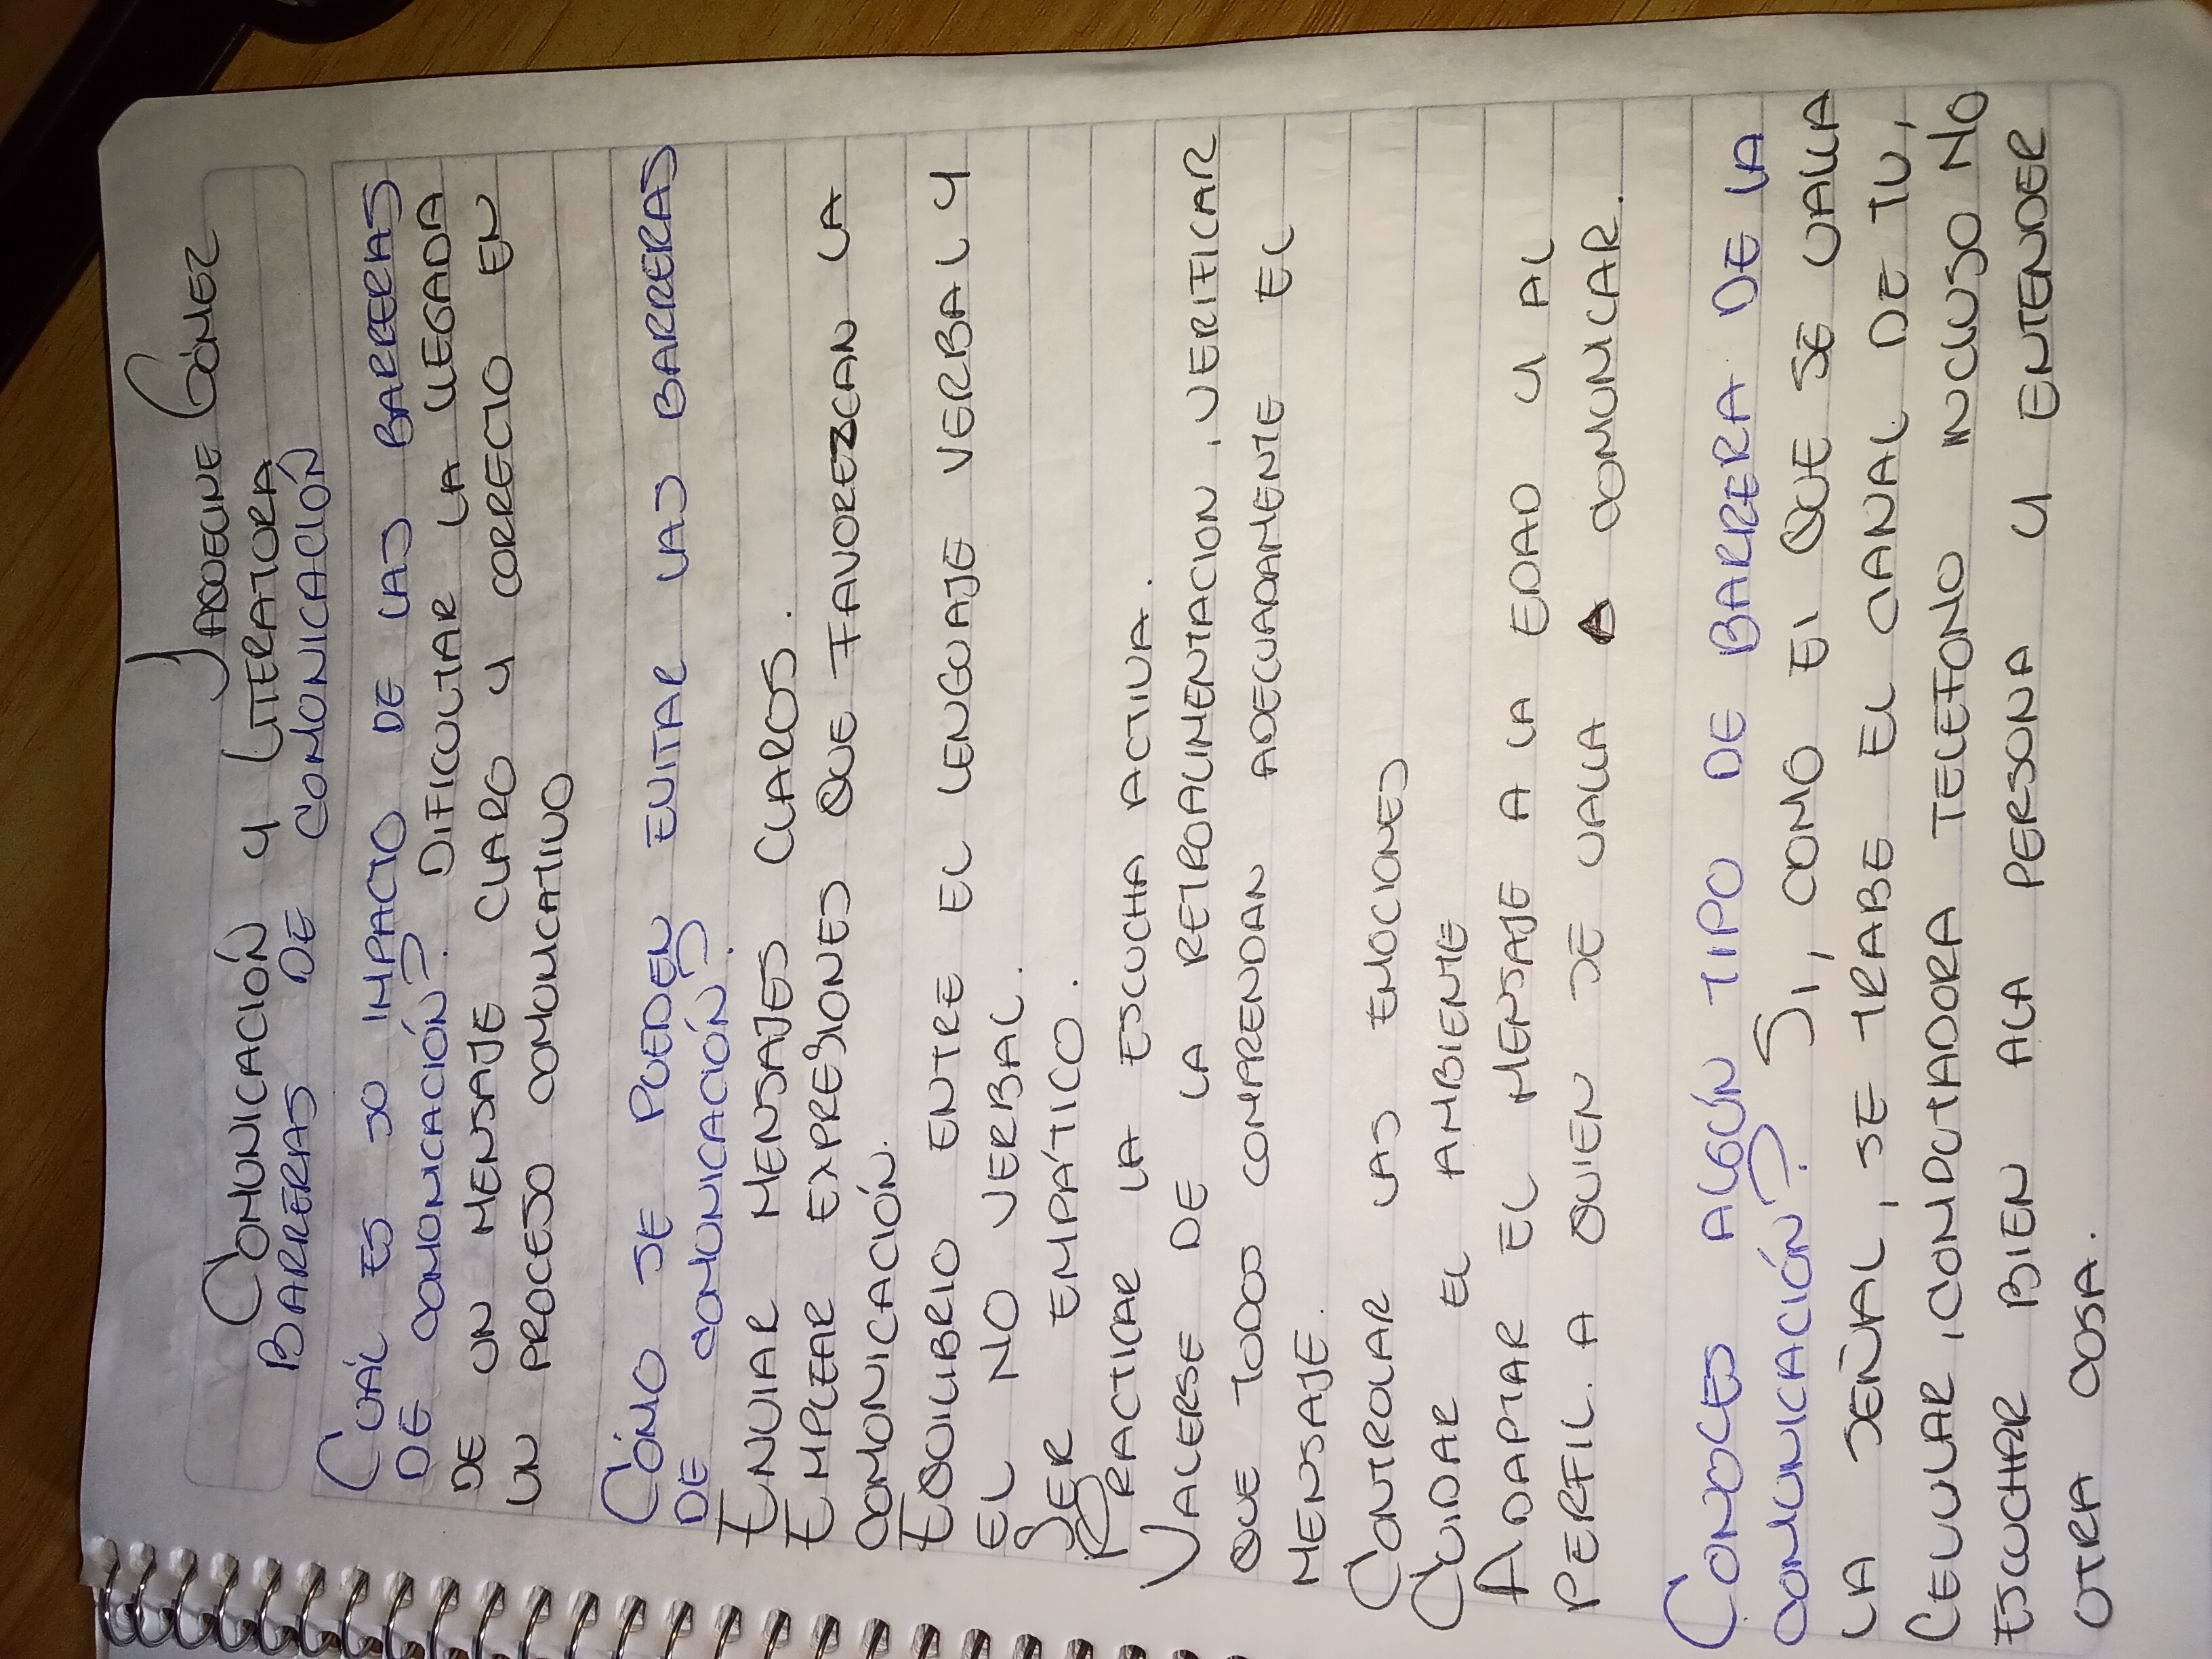 JAQUELINE GÓMEZ
COMUNICACIÓN Y LITERATURA
BARRERAS DE COMUNICACIÓN
CUÁL ES SU IMPACTO DE LAS BARRERAS
DE COMUNICACIÓN? DIFICULTAR LA LLEGADA
DE UN MENSAJE CLARO Y CORRECTO EN
UN PROCESO COMUNICATIVO
CÓMO SE PUEDEN EVITAR LAS BARRERAS
DE COMUNICACIÓN?
ENVIAR MENSAJES CLAROS.
EMPLEAR EXPRESIONES QUE FAVOREZCAN LA
COMUNICACIÓN.
EQUILIBRIO ENTRE EL LENGUAJE VERBAL Y
EL NO VERBAL.
SER EMPÁTICO.
PRACTICAR LA ESCUCHA ACTIVA.
VALERSE DE LA RETROALIMENTACION, VERIFICAR
QUE TODOS COMPRENDAN ADECUADAMENTE EL
MENSAJE.
CONTROLAR LAS EMOCIONES
CUIDAR EL AMBIENTE
ADAPTAR EL MENSAJE A LA EDAD Y AL
PERFIL. A QUIEN SE VALLA A COMUNICAR.
CONOCES ALGÚN TIPO DE BARRERA DE LA
COMUNICACIÓN? SI, COMO EL QUE SE VALLA
LA SEÑAL, SE TRABE EL CANAL DE TV,
CELULAR, COMPUTADORA TELEFONO INCLUSO NO
ESCUCHAR BIEN ALA PERSONA Y ENTENDER
OTRA COSA.